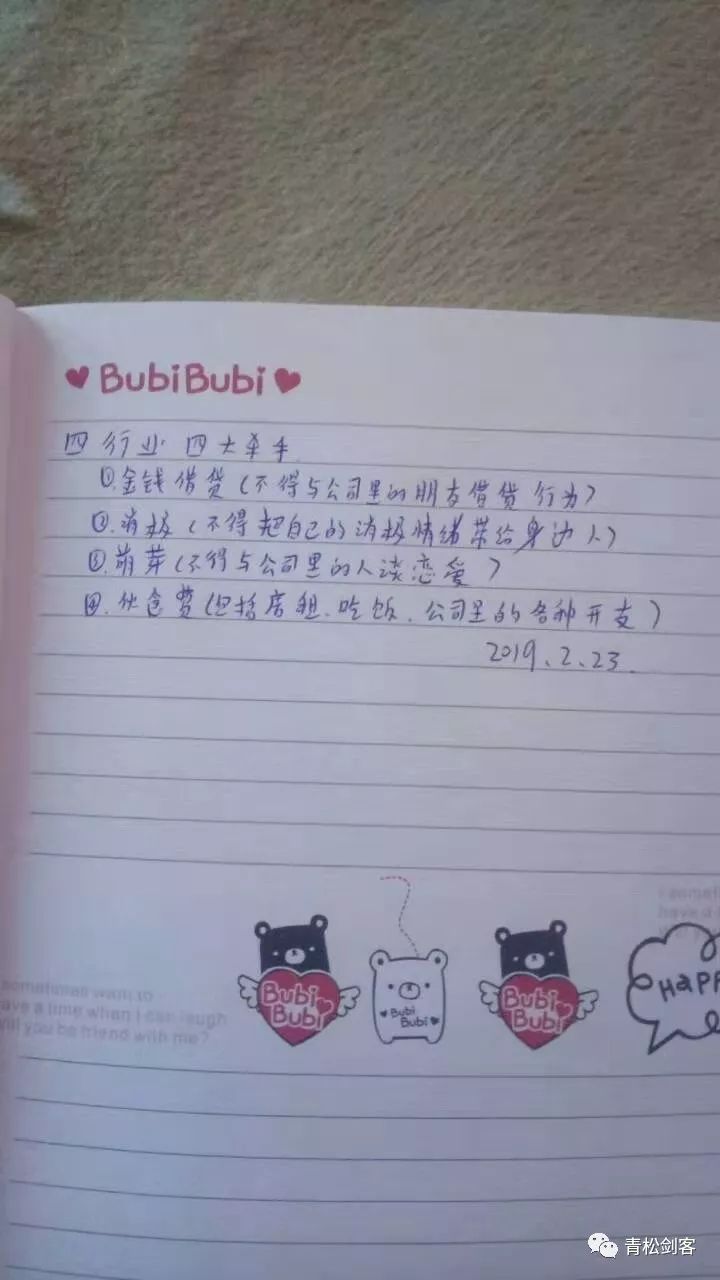 BubiBubi
四行业四大杀手
①.金钱借贷(不得与公司里的朋友借贷行为)
②.消极(不得把自己的消极情绪带给身边人)
③.萌芽(不得与公司里的人谈恋爱)
④.伙食费(包括房租、吃饭、公司里的各种开支)
2019、2、23.
I somet
have a
sometimes want to
have a time when I can laugh
will you be friend with me?
Bubi Bubi
Bubi Bubi
Bubi Bubi
HAPP
青松剑客